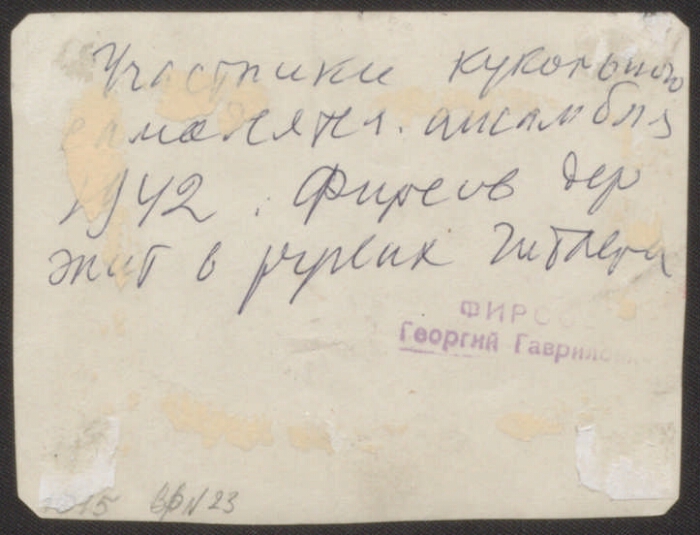 Участники кукольного
самодеятел. ансамбля
1942. Фирсов дер
жит в руках Гитлера
ФИРСОВ
Георгий Гаврилович
2015 ВФN23